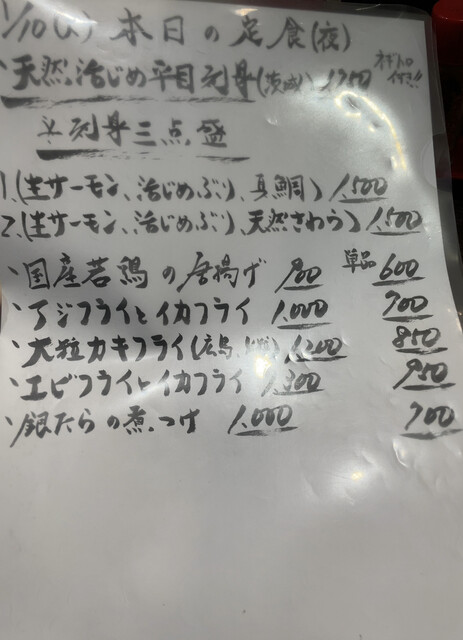 1/10 本日の定食(夜)
、天然活じめ平目刺身(茨城) 1250 ネギトロ付き!!
☆刺身三点盛
1.(生サーモン、活じめぶり、真鯛) 1,500
2.(生サーモン、活じめぶり、天然さわら) 1,500
、国産若鶏の唐揚げ 900 単品 600
、アジフライとイカフライ 1,000 700
、大粒カキフライ(広島 1,200 850
、エビフライとイカフライ 1,300 950
、銀たらの煮つけ 1,000 700